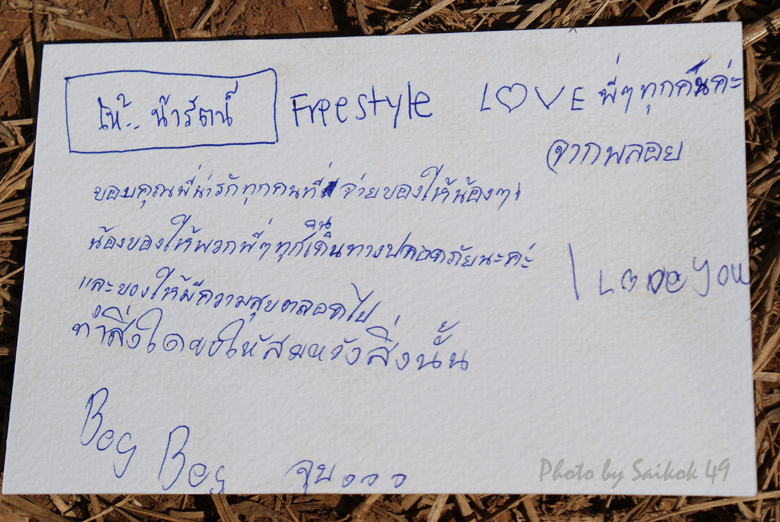 ให้.. น้ารัตน์
Freestyle L♡VE พี่ๆทุกคนค่ะ
จากพลอย
ขอบคุณพี่น่ารักทุกคนที่จ่ายของให้น้องๆ
น้องขอให้พวกพี่ๆทุกคนเดินทางปลอดภัยนะค่ะ
I Love you
และขอให้มีความสุขตลอดไป
ทำสิ่งใดขอให้สมหวังสิ่งนั้น
Bey Bey จุบ...
Photo by Saikok 49